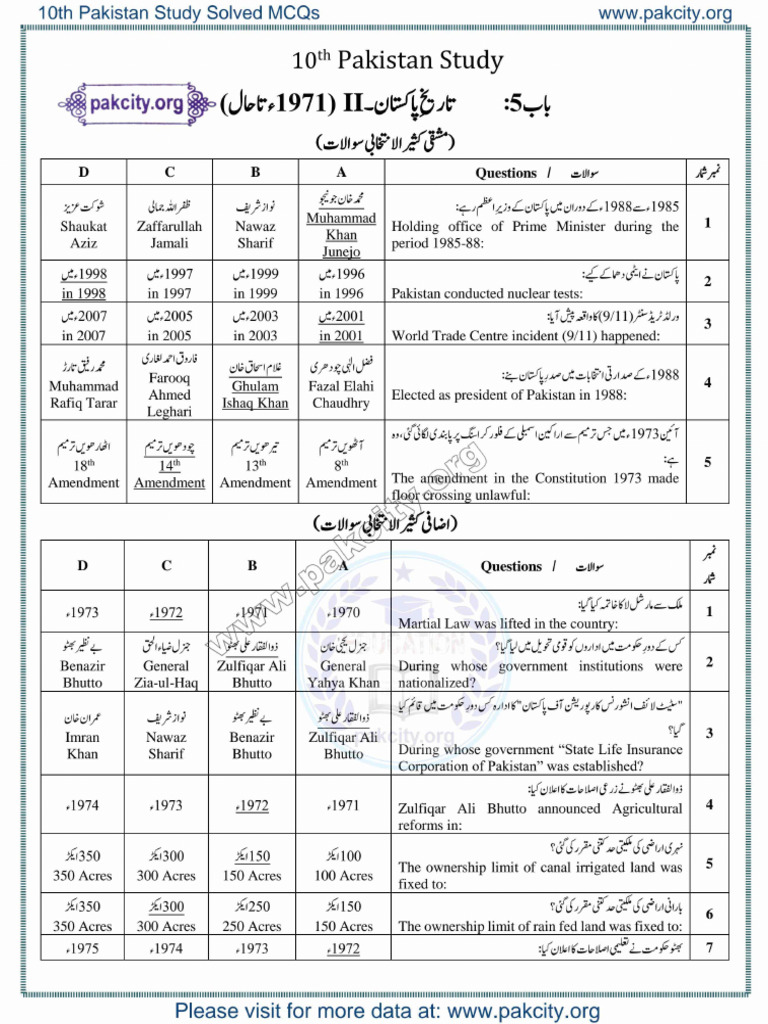 10th Pakistan Study Solved MCQs www.pakcity.org
10th Pakistan Study
pakcity.org
باب 5: تاریخِ پاکستان۔II (1971ء تا حال)
(مشقی کثیر الانتخابی سوالات)
نمبر شمار سوالات / Questions A B C D
1
1985ء سے 1988ء کے دوران میں پاکستان کے وزیرِ اعظم رہے:
Holding office of Prime Minister during the
period 1985-88:
محمد خان جونیجو
Muhammad
Khan
Junejo
نواز شریف
Nawaz
Sharif
ظفر اللہ جمالی
Zaffarullah
Jamali
شوکت عزیز
Shaukat
Aziz
2
پاکستان نے ایٹمی دھماکے کیے:
Pakistan conducted nuclear tests:
1996ء میں
in 1996
1999ء میں
in 1999
1997ء میں
in 1997
1998ء میں
in 1998
3
ورلڈ ٹریڈ سنٹر (9/11) کا واقعہ پیش آیا:
World Trade Centre incident (9/11) happened:
2001ء میں
in 2001
2003ء میں
in 2003
2005ء میں
in 2005
2007ء میں
in 2007
4
1988ء کے صدارتی انتخابات میں صدرِ پاکستان بنے:
Elected as president of Pakistan in 1988:
فضل الٰہی چودھری
Fazal Elahi
Chaudhry
غلام اسحاق خان
Ghulam
Ishaq Khan
فاروق احمد لغاری
Farooq
Ahmed
Leghari
محمد رفیق تارڑ
Muhammad
Rafiq Tarar
5
آئین 1973ء میں جس ترمیم سے اراکین اسمبلی کے فلور کراسنگ پر پابندی لگائی گئی، وہ
ہے:
The amendment in the Constitution 1973 made
floor crossing unlawful:
آٹھویں ترمیم
8th
Amendment
تیرھویں ترمیم
13th
Amendment
چودھویں ترمیم
14th
Amendment
اٹھارھویں ترمیم
18th
Amendment
(اضافی کثیر الانتخابی سوالات)
نمبر شمار سوالات / Questions A B C D
1
ملک سے مارشل لا کا خاتمہ کیا گیا:
Martial Law was lifted in the country:
1970ء 1971ء 1972ء 1973ء
2
کس کے دورِ حکومت میں اداروں کو قومی تحویل میں لیا گیا؟
During whose government institutions were
nationalized?
جنرل یحییٰ خان
General
Yahya Khan
ذوالفقار علی بھٹو
Zulfiqar Ali
Bhutto
جنرل ضیاء الحق
General
Zia-ul-Haq
بے نظیر بھٹو
Benazir
Bhutto
3
"سٹیٹ لائف انشورنس کارپوریشن آف پاکستان" کا ادارہ کس دورِ حکومت میں قائم کیا
گیا؟
During whose government “State Life Insurance
Corporation of Pakistan” was established?
ذوالفقار علی بھٹو
Zulfiqar Ali
Bhutto
بے نظیر بھٹو
Benazir
Bhutto
نواز شریف
Nawaz
Sharif
عمران خان
Imran
Khan
4
ذوالفقار علی بھٹو نے زرعی اصلاحات کا اعلان کیا:
Zulfiqar Ali Bhutto announced Agricultural
reforms in:
1971ء 1972ء 1973ء 1974ء
5
نہری اراضی کی ملکیتی حد کتنی مقرر کی گئی؟
The ownership limit of canal irrigated land was
fixed to:
100 ایکڑ
100 Acres
150 ایکڑ
150 Acres
300 ایکڑ
300 Acres
350 ایکڑ
350 Acres
6
بارانی اراضی کی ملکیتی حد کتنی مقرر کی گئی؟
The ownership limit of rain fed land was fixed to:
150 ایکڑ
150 Acres
250 ایکڑ
250 Acres
300 ایکڑ
300 Acres
350 ایکڑ
350 Acres
7
بھٹو حکومت نے تعلیمی اصلاحات کا اعلان کیا:
1972ء 1973ء 1974ء 1975ء
www.pakcity.org
EDUCATION
pakcity.org
Please visit for more data at: www.pakcity.org